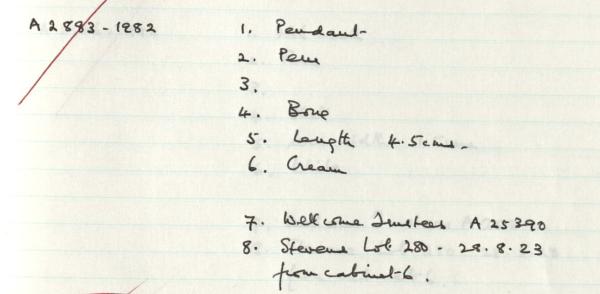 A2883-1982
1. Pendant
2. Peru
3.
4. Bone
5. Length 4.5cms.
6. Cream
7. Wellcome Trustees A25390
8. Stevens Lot 280 - 28.8.23
from cabinet 6.